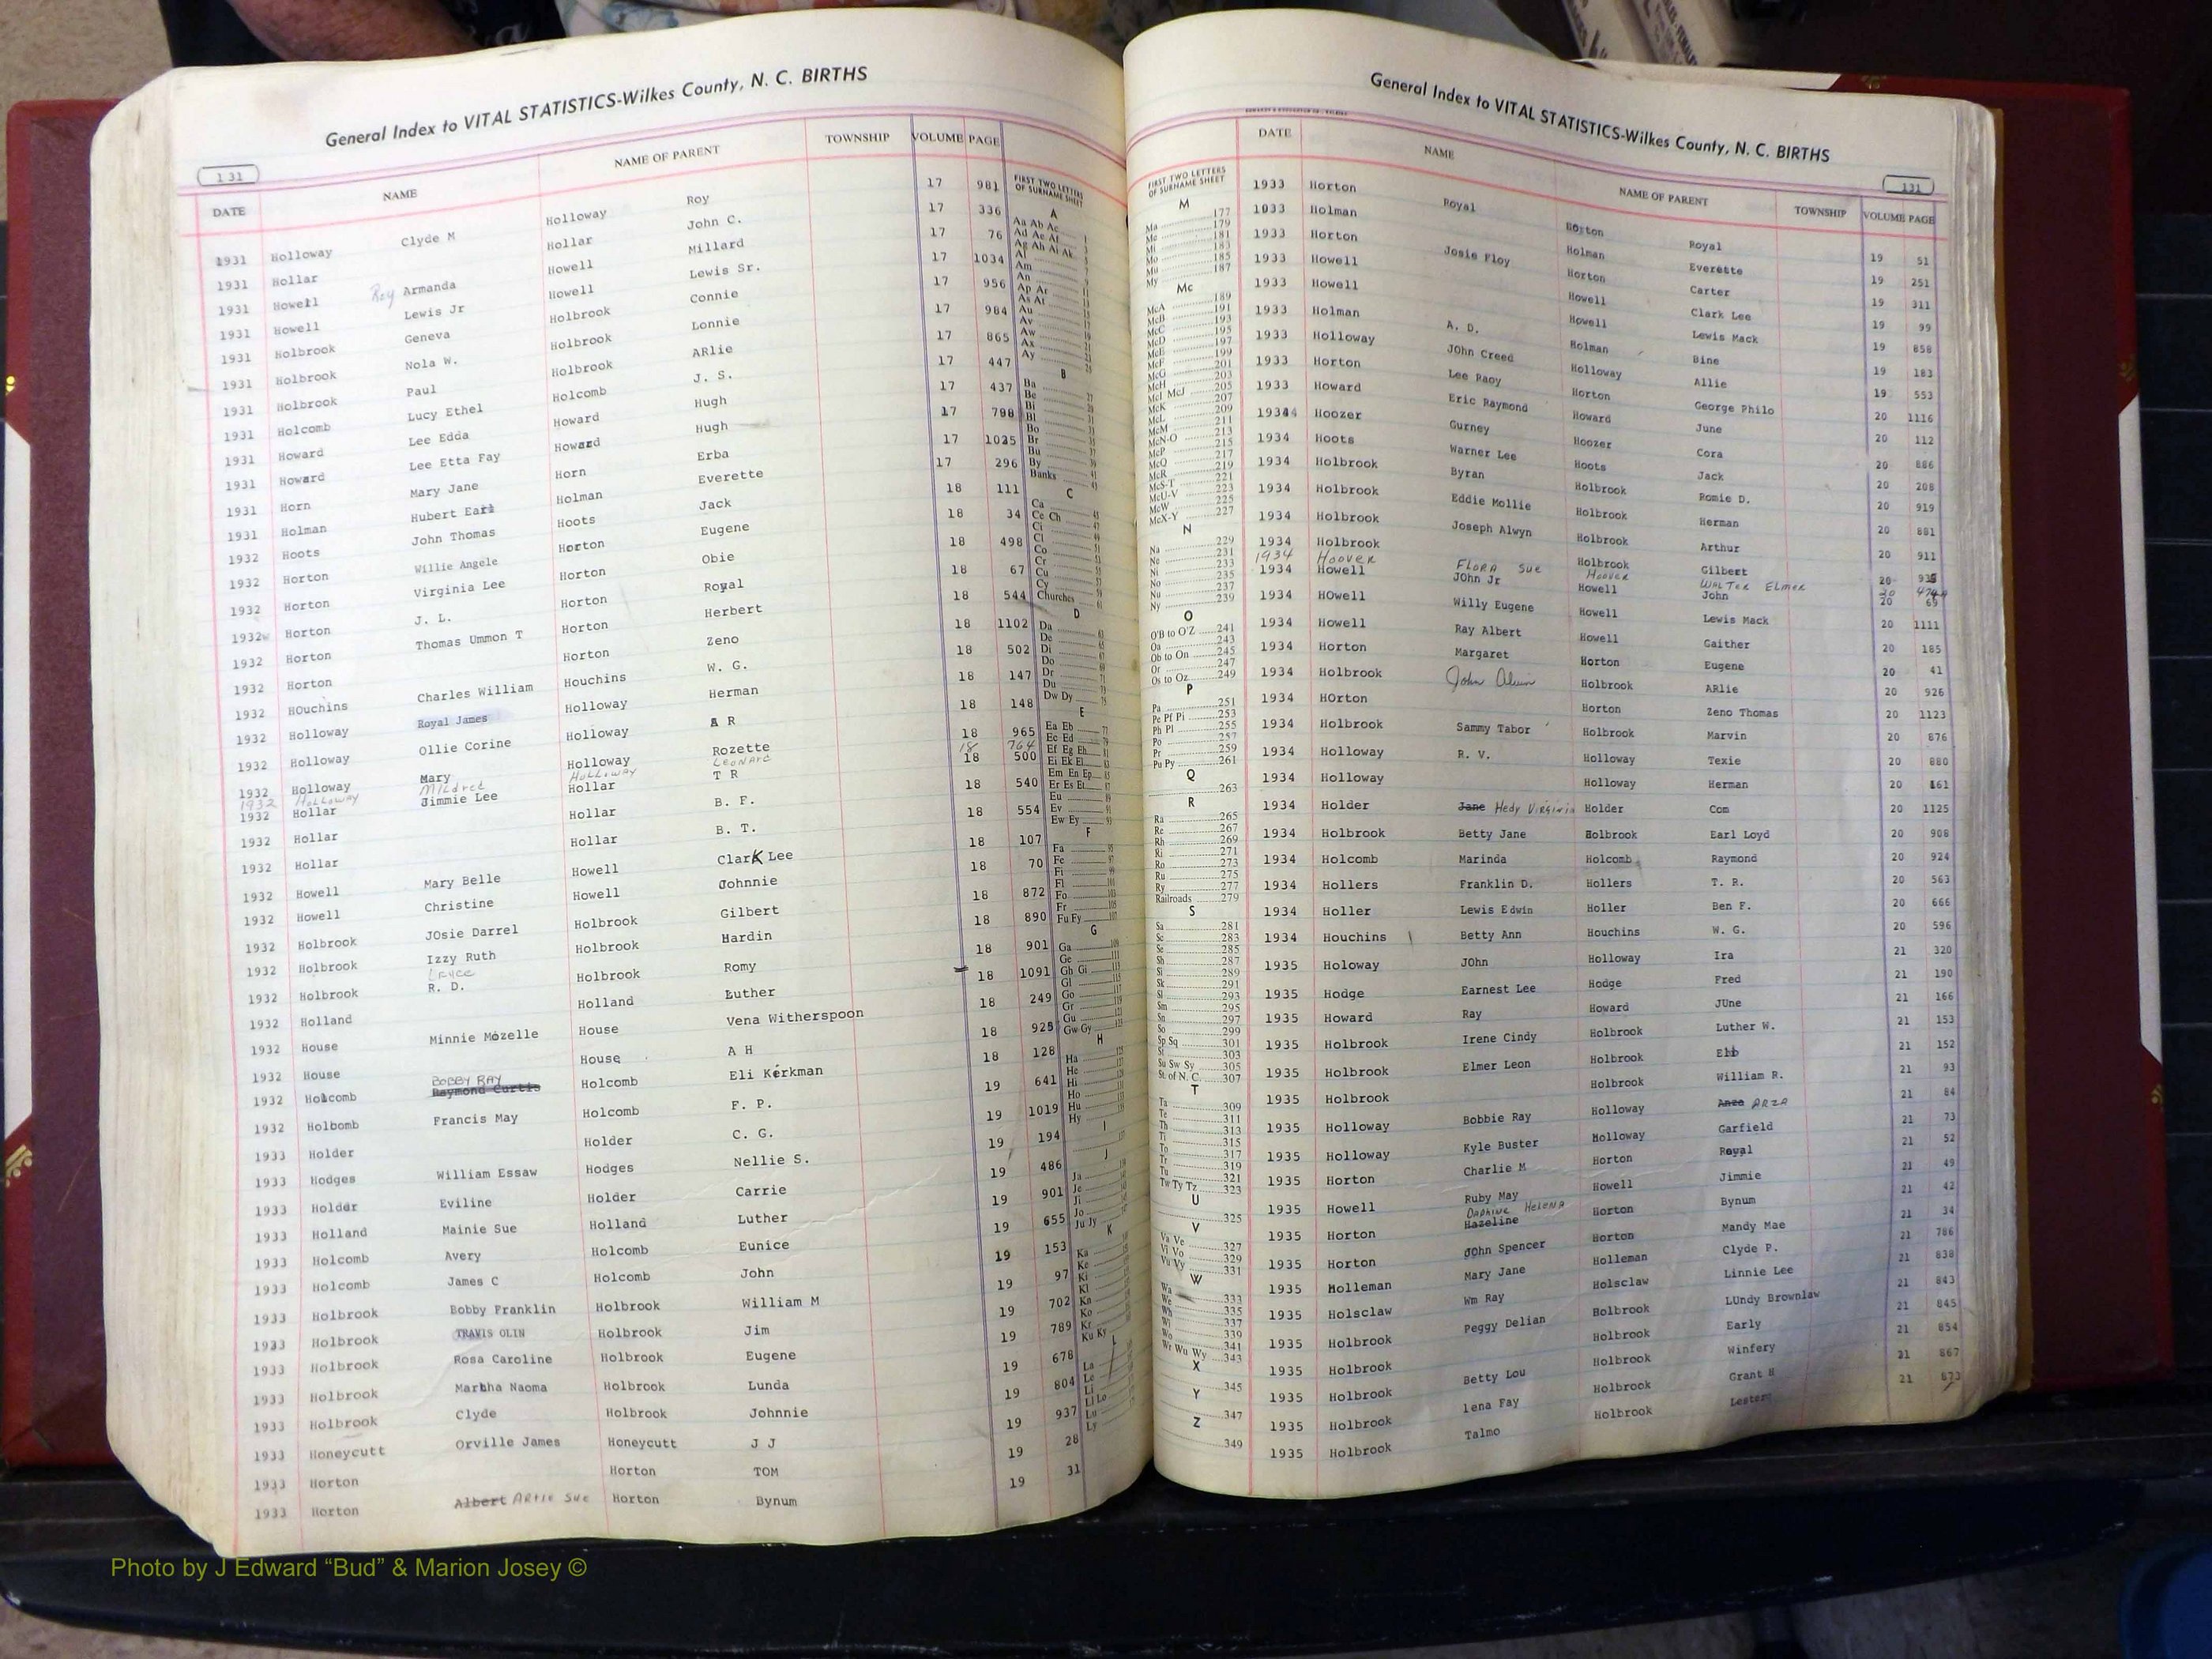 General Index to VITAL STATISTICS-Wilkes County, N. C. BIRTHS
131
DATE NAME NAME OF PARENT TOWNSHIP VOLUME PAGE
1931 Holloway Clyde M Holloway Roy 17 981
1931 Hollar Hollar John C. 17 336
1931 Howell Roy Armanda Howell Millard 17 76
1931 Howell Lewis Jr Howell Lewis Sr. 17 1034
1931 Holbrook Geneva Holbrook Connie 17 956
1931 Holbrook Nola W. Holbrook Lonnie 17 984
1931 Holbrook Paul Holbrook ARlie 17 865
1931 Holcomb Lucy Ethel Holcomb J. S. 17 447
1931 Howard Lee Edda Howard Hugh 17 437
1931 Howard Lee Etta Fay Howard Hugh 17 798
1931 Horn Mary Jane Horn Erba 17 1025
1931 Holman Hubert Earl Holman Everette 17 296
1932 Hoots John Thomas Hoots Jack 18 111
1932 Horton Willie Angele Horton Eugene 18 34
1932 Horton Virginia Lee Horton Obie 18 498
1932 Horton J. L. Horton Royal 18 67
1932 Horton Thomas Ummon T Horton Herbert 18 544
1932 Horton Horton Zeno 18 1102
1932 HOuchins Charles William Houchins W. G. 18 502
1932 Holloway Royal James Holloway Herman 18 147
1932 Holloway Ollie Corine Holloway A R 18 148
1932 Holloway Mary Holloway Rozette 18 965
1932 Holloway Mildred Holloway Leonard 18 764
1932 Hollar Jimmie Lee Hollar T R 18 500
1932 Hollar Hollar B. F. 18 540
1932 Hollar Hollar B. T. 18 554
1932 Howell Mary Belle Howell ClarK Lee 18 107
1932 Howell Christine Howell Johnnie 18 70
1932 Holbrook JOsie Darrel Holbrook Gilbert 18 872
1932 Holbrook Izzy Ruth Holbrook Hardin 18 890
1932 Holbrook R. D. Holbrook Romy 18 901
1932 Holland Holland Luther 18 1091
1932 House Minnie Mozelle House Vena Witherspoon 18 249
1932 House House A H 18 925
BOBBY RAY
1932 Holcomb Raymond Curtis Holcomb Eli Kerkman 18 128
1932 Holbomb Francis May Holcomb F. P. 19 641
1933 Holder Holder C. G. 19 1019
1933 Hodges William Essaw Hodges Nellie S. 19 194
1933 Holder Eviline Holder Carrie 19 486
1933 Holland Mainie Sue Holland Luther 19 901
1933 Holcomb Avery Holcomb Eunice 19 655
1933 Holcomb James C Holcomb John 19 153
1933 Holbrook Bobby Franklin Holbrook William M 19 97
1933 Holbrook TRAVIS OLIN Holbrook Jim 19 702
1933 Holbrook Rosa Caroline Holbrook Eugene 19 789
1933 Holbrook Martha Naoma Holbrook Lunda 19 678
1933 Holbrook Clyde Holbrook Johnnie 19 804
1933 Honeycutt Orville James Honeycutt J J 19 937
1933 Horton Horton TOM 19 28
1933 Horton Albert Artie Sue Horton Bynum 19 31
FIRST TWO LETTERS
OF SURNAME SHEET
A
Aa Ab Ac
Ad Ae Af
Ag Ah Ai Ak
Al
Am
An
Ap Ar
As At
Au
Av
Aw
Ax
Ay
B
Ba
Be
Bi
Bl
Bo
Br
Bu
By
Banks
C
Ca
Ce Ch
Ci
Cl
Co
Cr
Cu
Cy
Churches
D
Da
De
Di
Do
Dr
Du
Dw Dy
E
Ea Eb
Ec Ed
Ef Eg Eh
Ei Ek El
Em En Ep
Er Es Et
Eu
Ev
Ew Ey
F
Fa
Fe
Fi
Fl
Fo
Fr
Fu Fy
G
Ga
Ge
Gh Gi
Gl
Go
Gr
Gu
Gw Gy
H
Ha
He
Hi
Ho
Hu
Hy
I
J
Ja
Je
Ji
Jo
Ju Jy
K
Ka
Ke
Ki
Kl
Kn
Ko
Kr
Ku Ky
L
La
Le
Li
Ll Lo
Lu
Ly
General Index to VITAL STATISTICS-Wilkes County, N. C. BIRTHS
131
FIRST TWO LETTERS
OF SURNAME SHEET
M
Ma 177
Me 179
Mi 181
Mo 183
Mu 185
My 187
Mc
McA 189
McB 191
McC 193
McD 195
McE 197
McF 199
McG 201
McH 203
McI McJ 205
McK 207
McL 209
McM 211
McN-O 213
McP 215
McQ 217
McR 219
McS-T 221
McU-V 223
McW 225
McX-Y 227
N
Na 229
Ne 231
Ni 233
No 235
Nu 237
Ny 239
O
O'B to O'Z 241
Oa 243
Ob to On 245
Or 247
Os to Oz 249
P
Pa 251
Pe Pf Pi 253
Ph Pl 255
Po 257
Pr 259
Pu Py 261
Q
263
R
Ra 265
Re 267
Rh 269
Ri 271
Ro 273
Ru 275
Ry 277
Railroads 279
S
Sa 281
Sc 283
Se 285
Sh 287
Si 289
Sk 291
Sl 293
Sm 295
Sn 297
So 299
Sp Sq 301
St 303
Su Sw Sy 305
St. of N. C. 307
T
Ta 309
Te 311
Th 313
Ti 315
To 317
Tr 319
Tu 321
Tw Ty Tz 323
U
325
V
Va Ve 327
Vi Vo 329
Vu Vy 331
W
Wa 333
We 335
Wh 337
Wi 339
Wo 341
Wr Wu Wy 343
X
345
Y
347
Z
349
DATE NAME NAME OF PARENT TOWNSHIP VOLUME PAGE
1933 Horton Royal Horton Royal 19 51
1933 Holman Holman Everette 19 251
1933 Horton Josie Floy Horton Carter 19 311
1933 Howell Howell Clark Lee 19 99
1933 Howell Howell Lewis Mack 19 858
1933 Holman A. D. Holman Bine 19 183
1933 Holloway JOhn Creed Holloway Allie 19 553
1933 Horton Lee Raoy Horton George Philo 20 1116
1933 Howard Eric Raymond Howard June 20 112
1934 Hoozer Gurney Hoozer Cora 20 886
1934 Hoots Warner Lee Hoots Jack 20 208
1934 Holbrook Byran Holbrook Romie D. 20 919
1934 Holbrook Eddie Mollie Holbrook Herman 20 881
1934 Holbrook Joseph Alwyn Holbrook Arthur 20 911
1934 Holbrook Holbrook Gilbert 20
1934 Hoover FLORA SUE Hoover WALTER ELMER 20
1934 Howell JOhn Jr Howell John 20 69
1934 HOwell Willy Eugene Howell Lewis Mack 20 1111
1934 Howell Ray Albert Howell Gaither 20 185
1934 Horton Margaret Horton Eugene 20 41
1934 Holbrook John Holbrook ARlie 20 926
1934 HOrton Horton Zeno Thomas 20 1123
1934 Holbrook Sammy Tabor Holbrook Marvin 20 876
1934 Holloway R. V. Holloway Texie 20 880
1934 Holloway Holloway Herman 20 161
1934 Holder Jane Hedy Virginia Holder Com 20 1125
1934 Holbrook Betty Jane Holbrook Earl Loyd 20 908
1934 Holcomb Marinda Holcomb Raymond 20 924
1934 Hollers Franklin D. Hollers T. R. 20 563
1934 Holler Lewis Edwin Holler Ben F. 20 666
1934 Houchins Betty Ann Houchins W. G. 20 596
1935 Holoway JOhn Holloway Ira 21 320
1935 Hodge Earnest Lee Hodge Fred 21 190
1935 Howard Ray Howard JUne 21 166
1935 Holbrook Irene Cindy Holbrook Luther W. 21 153
1935 Holbrook Elmer Leon Holbrook Ebb 21 152
1935 Holbrook Holbrook William R. 21 93
1935 Holloway Bobbie Ray Holloway Anza ARZA 21 84
1935 Holloway Kyle Buster Holloway Garfield 21 73
1935 Horton Charlie M Horton Royal 21 52
1935 Howell Ruby May Howell Jimmie 21 49
DAPHINE HELENA
1935 Horton Hazeline Horton Bynum 21 42
1935 Horton John Spencer Horton Mandy Mae 21 34
1935 Holleman Mary Jane Holleman Clyde P. 21 786
1935 Holsclaw Wm Ray Holsclaw Linnie Lee 21 838
1935 Holbrook Peggy Delian Holbrook LUndy Brownlaw 21 843
1935 Holbrook Holbrook Early 21 845
1935 Holbrook Betty Lou Holbrook Winfery 21 854
1935 Holbrook lena Fay Holbrook Grant H 21 867
1935 Holbrook Talmo Holbrook Lester 21 873
Photo by J Edward “Bud” & Marion Josey ©